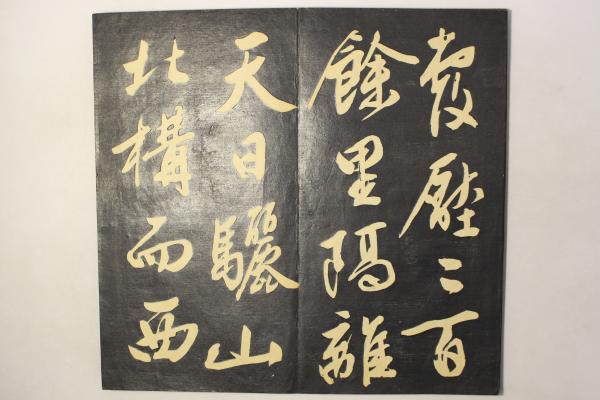 覆壓二百
餘里隔離
天日驪山
北構而西